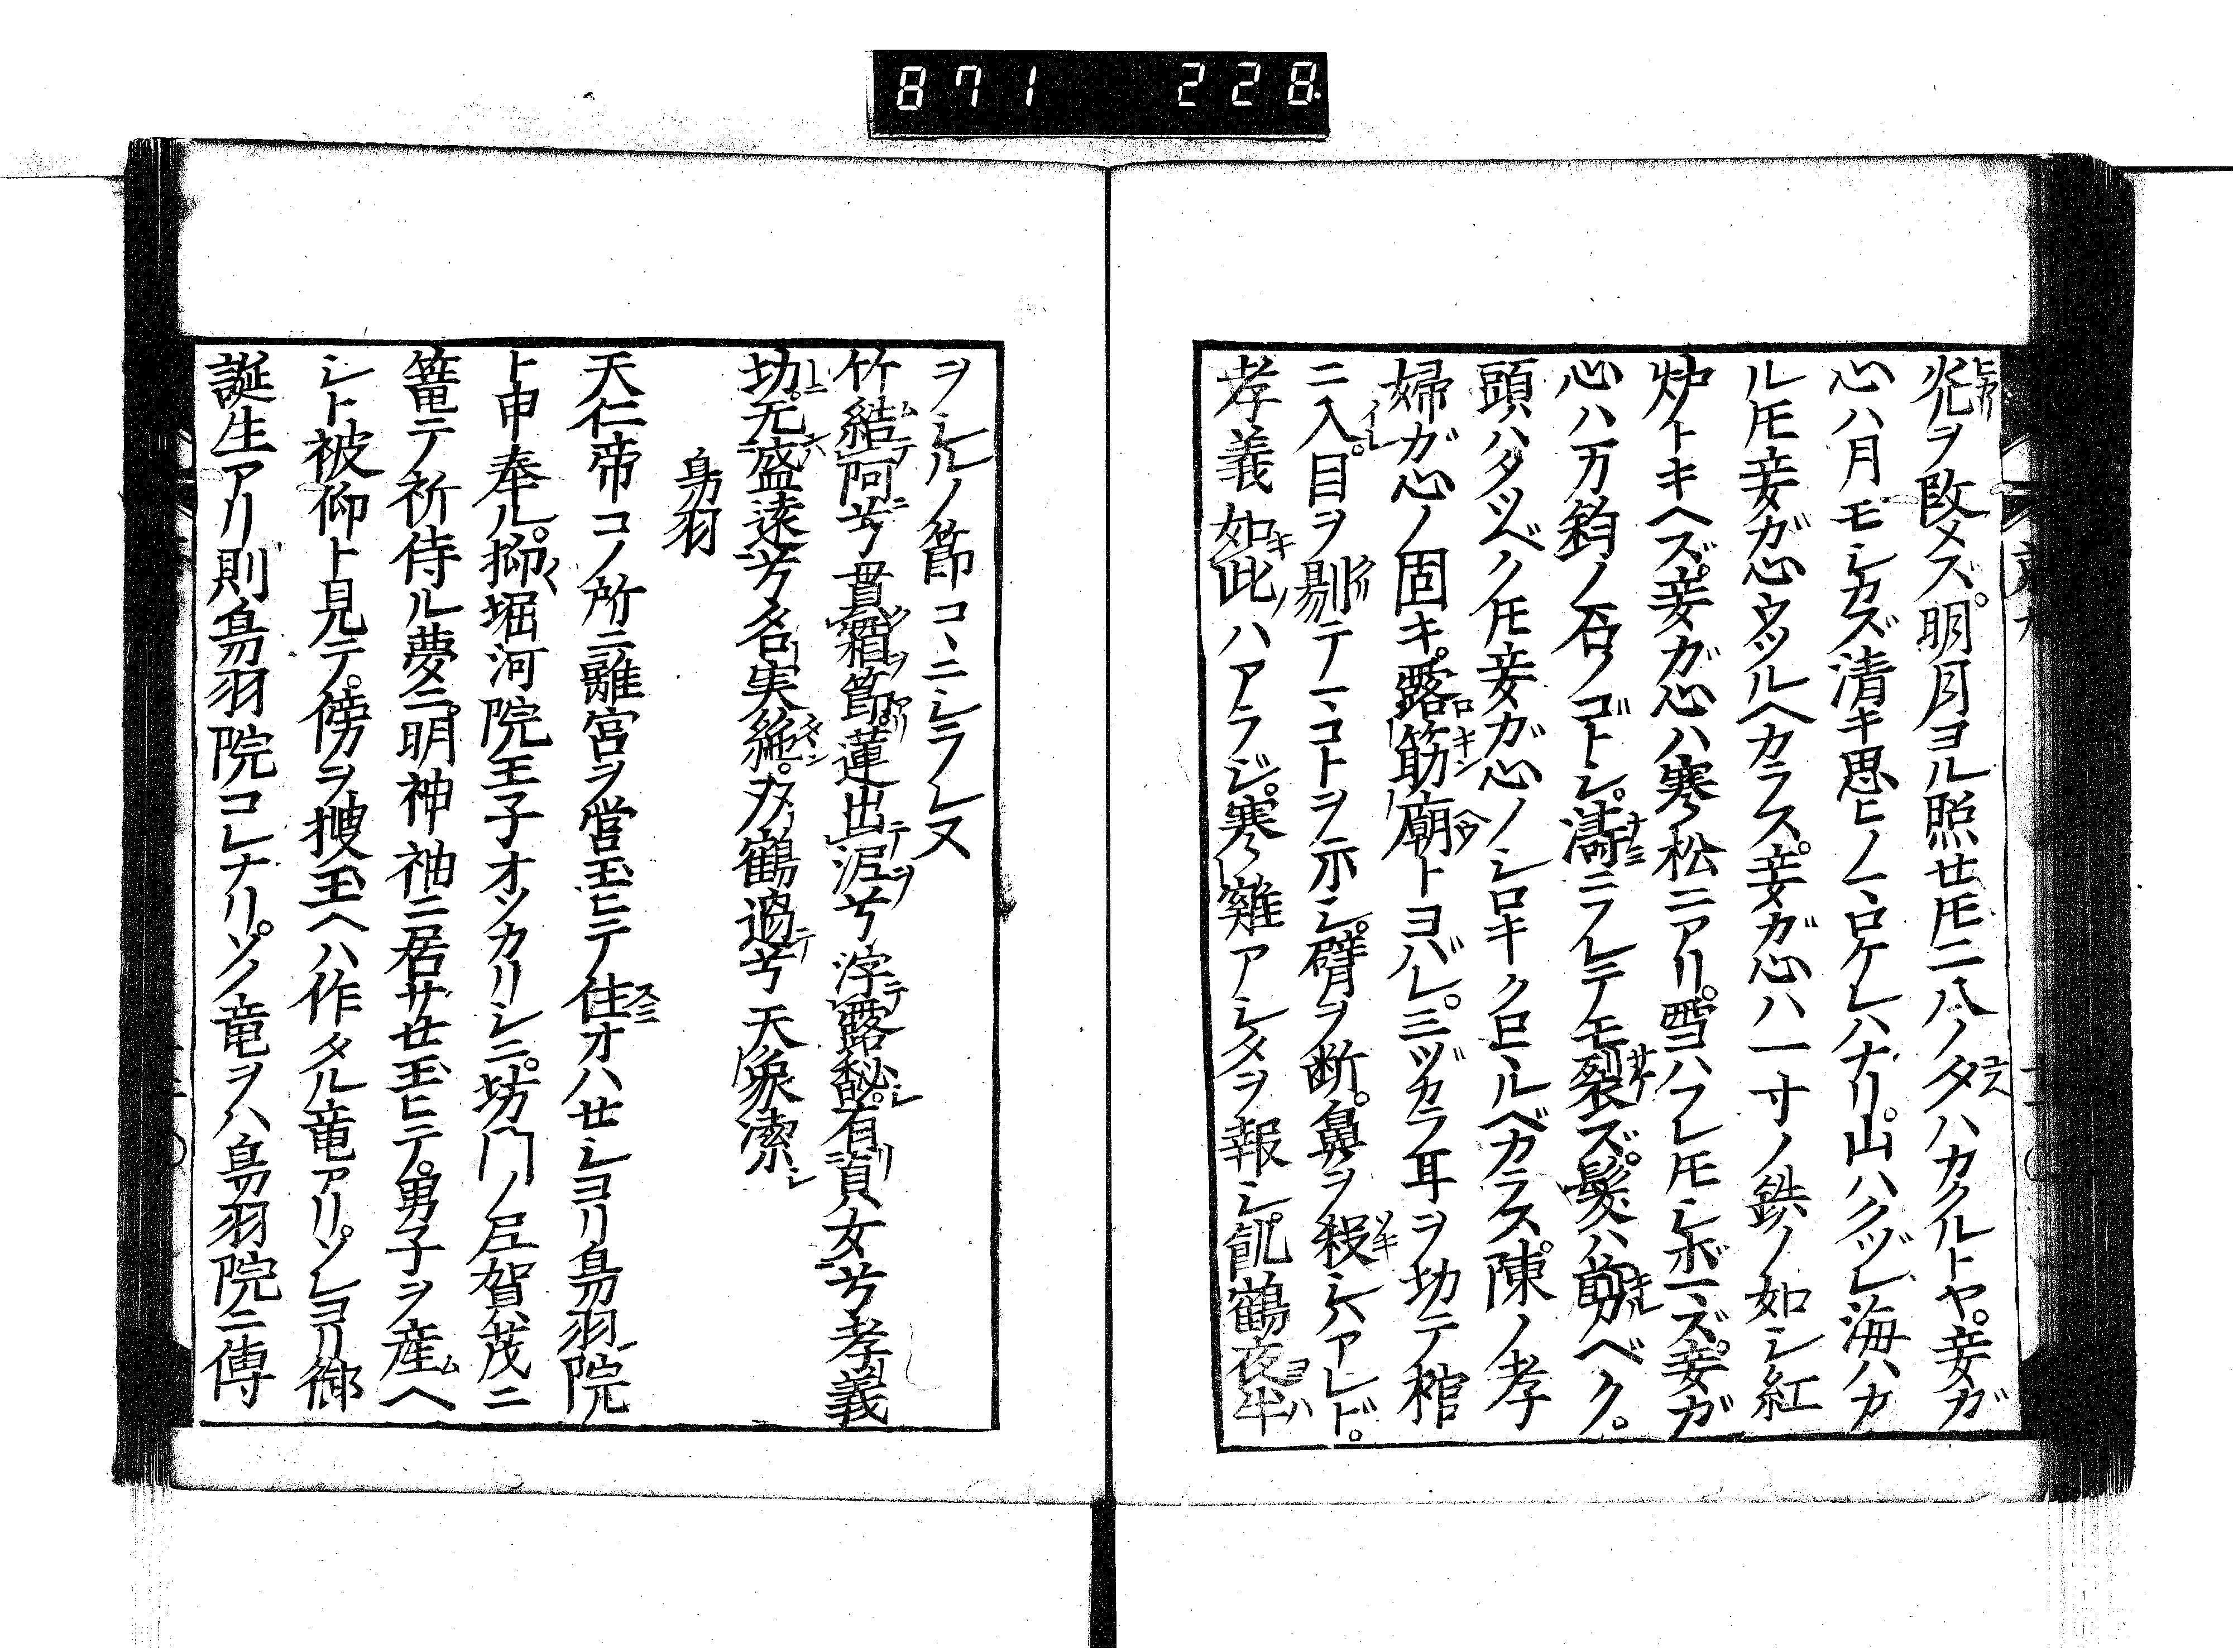 871 228
光ヲ改メズ。明月ヨル照セ𪜈二八ノ夕ハカクルトヤ。妾ガ
心ハ月モシカズ清キ思ヒノヽロケレハナリ。山ハクヅレ海ハカ
ル𪜈妾ガ心ウツルヘカラス。妾ガ心ハ一寸ノ鉄ノ如シ紅
炉トキヘズ。妾ガ心ハ寒松ニアリ。雪ハフレ𪜈シボマズ。妾ガ
心ハ万鈞ノ石ノゴトシ。濤ニフレテモ裂ズ。髪ハ剪ベク。
頭ハダツベク𪜈妾ガ心ノシロキクロムルベカラス。陳ノ孝
婦ガ心ノ固キ。露筋廟トヨバレ。ミヅカラ耳ヲ切テ棺
ニ入。目ヲ剔テマコトヲ示シ。臂ヲ断。鼻ヲ殺シハアレド。
孝義如此ハアラジ。寒雞アシタヲ報シ。飢鶴夜半
ヲシルノ節コヽニシラレヌ
竹結阿兮貫霜節。蓮出泥兮浮露馥。有貞女兮孝義
切。无盛遠兮名実絶。刄鶴過兮天象索
鳥羽
天仁帝コノ所ニ離宮ヲ営玉ヒテ住オハセシヨリ鳥羽院
ト申奉ル。抑堀河院王子オツカリシニ。坊門ノ尼賀茂ニ
篭テ祈侍ル夢ニ。明神袖ニ居サセ玉ヒテ。男子ヲ産ヘ
シト被仰ト見テ。傍ヲ捜玉ヘハ作タル竜アリ。ソレヨリ御
誕生アリ則鳥羽院コレナリ。ソノ竜ヲハ鳥羽院ニ傳